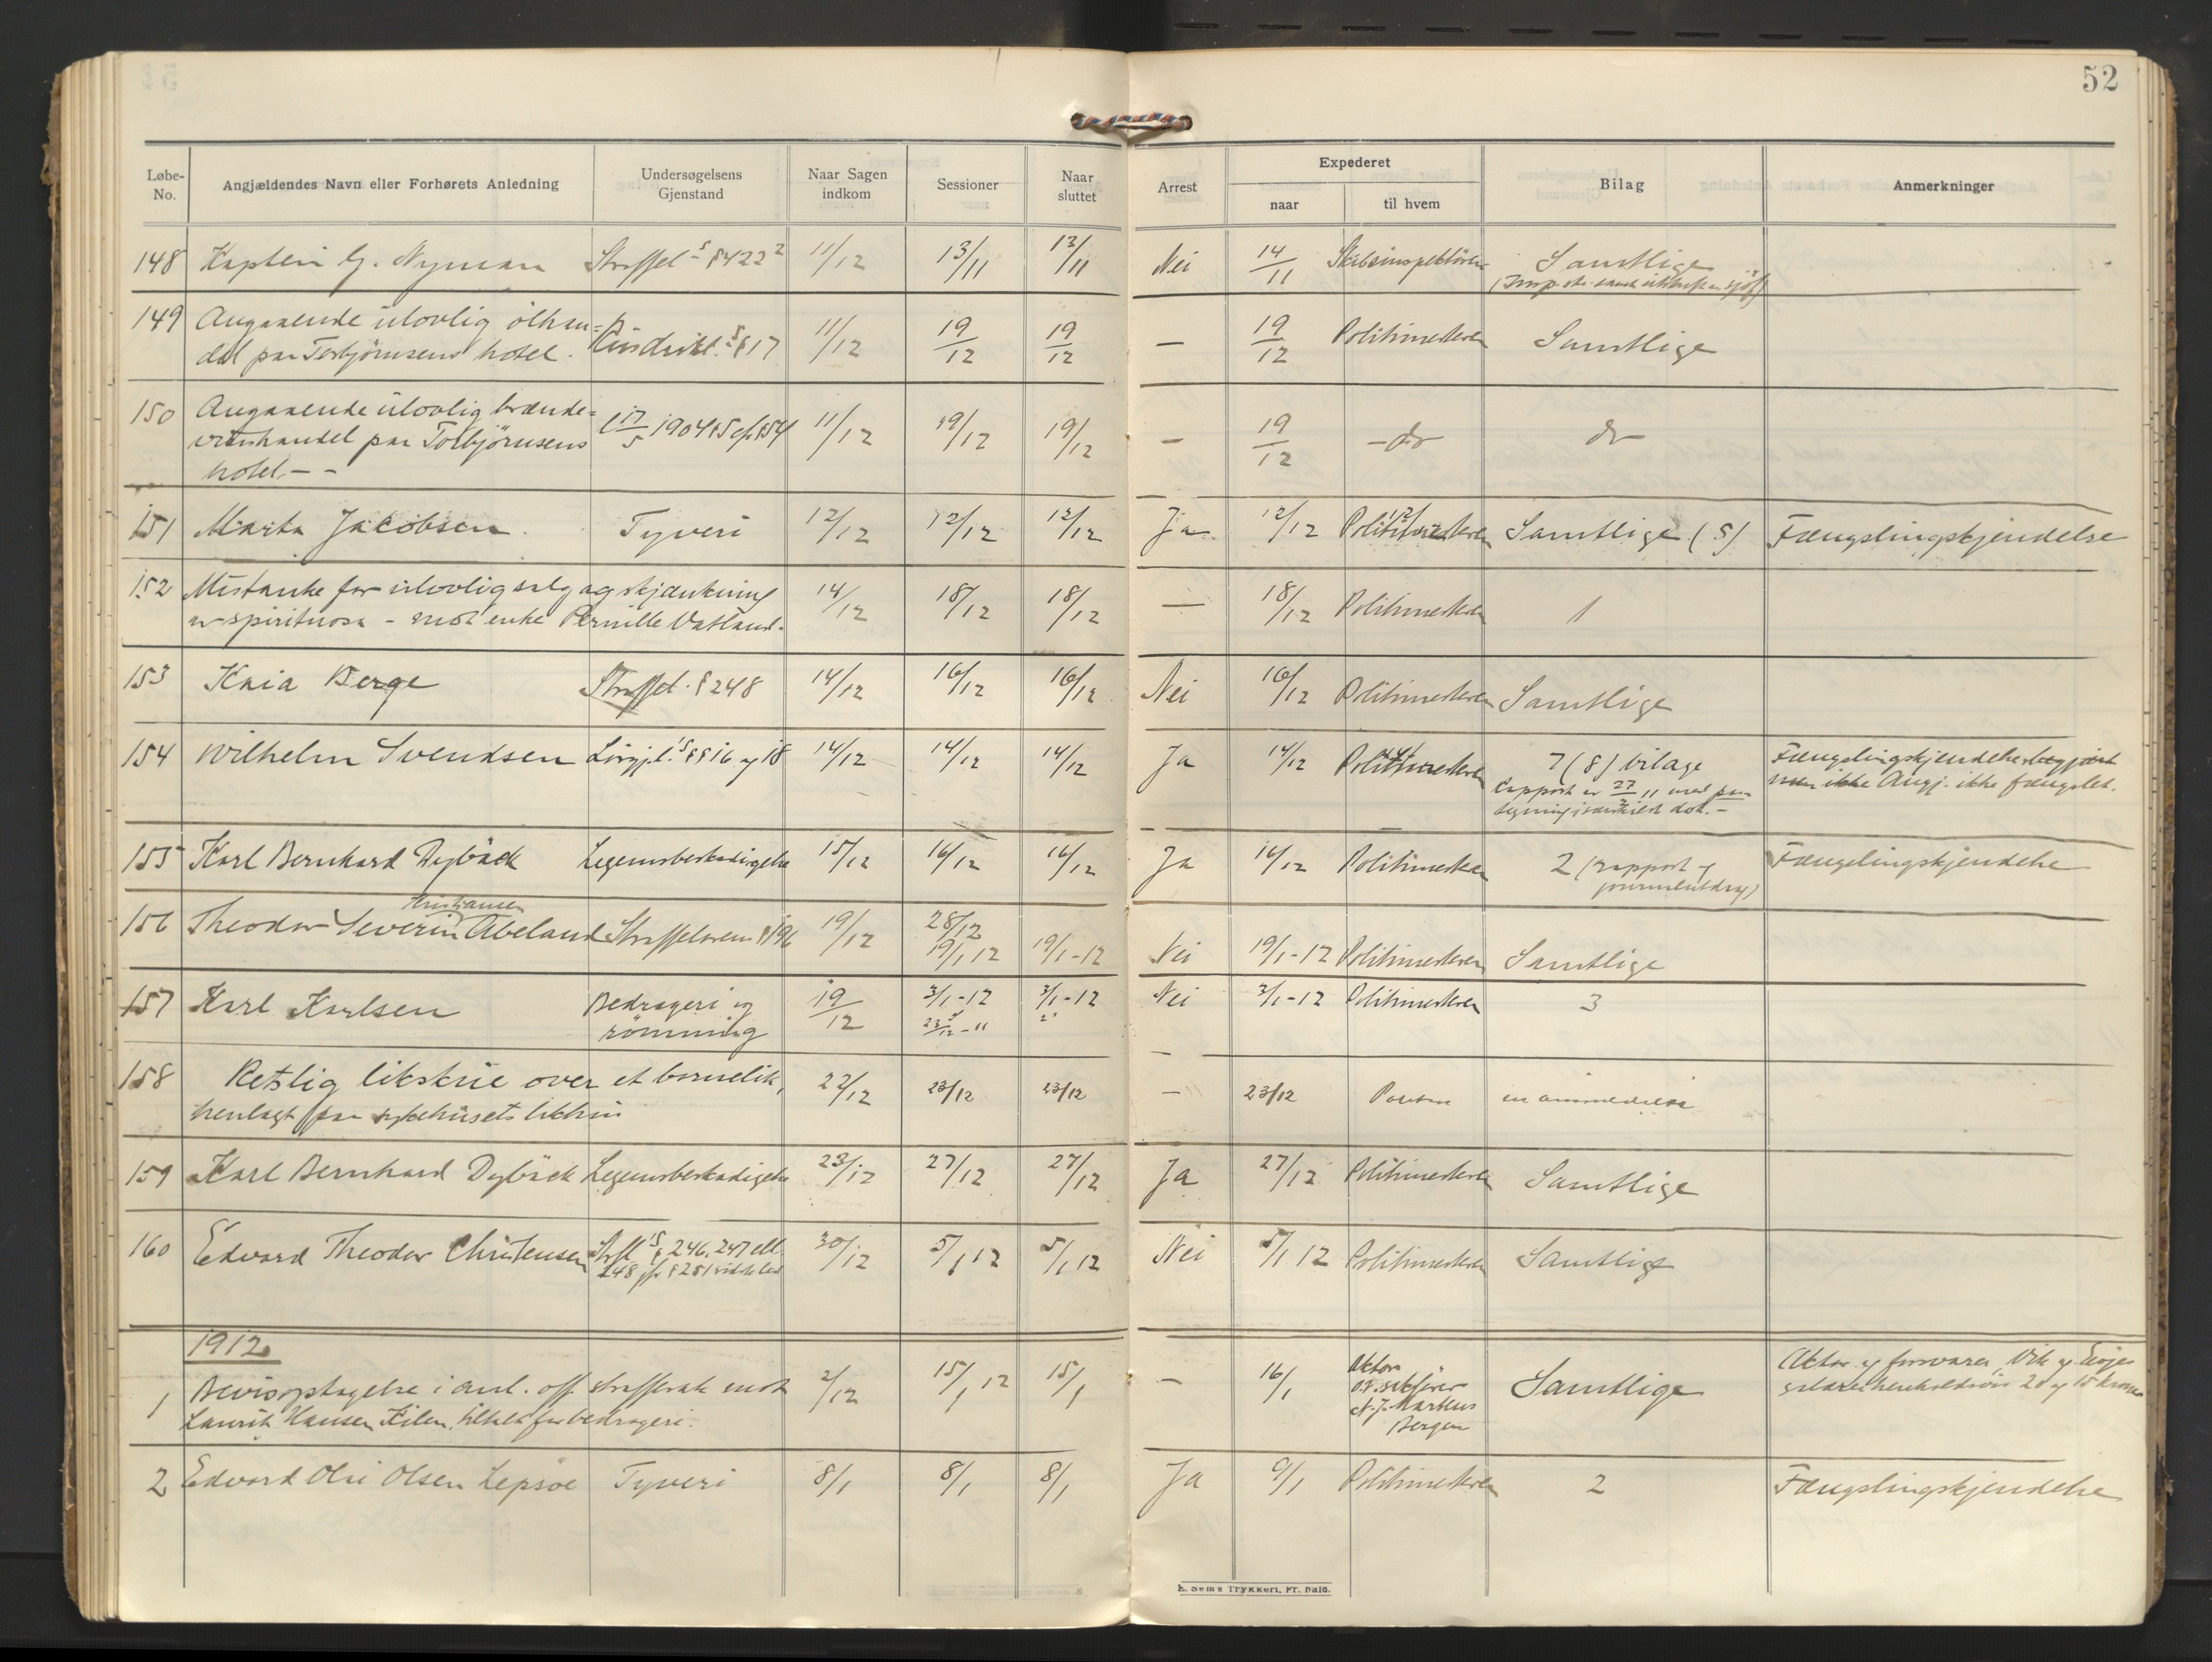 52
Løbe-No. Angjældendes Navn eller Forhørets Anledning Undersøgelsens Gjenstand Naar Sagen indkom Sessioner Naar sluttet Arrest Expederet naar til hvem Bilag Anmerkninger
148 Kaptein G. Nyman Straffel.s §422² 11/12 13/11 13/11 Nei 14/11 Skibsinspektøren Samtlige
149 Angaaende ulovlig ølhan= 11/12 19/12 19/12 — 19/12 Politimesteren Samtlige
del paa Torbjørnsens hotel. §17
150 Angaaende ulovlig brænde= l 17/5 1904 §5 cfr §54 11/12 19/12 19/12 — 19/12 - do do
vinshandel paa Torbjørnsens
hotel. - -
151 Marta Jakobsen. Tyveri 12/12 12/12 12/12 Ja 12/12 Politimesteren Samtlige (5) Fængslingskjendelse
152 Mistanke for ulovlig salg og skjænkning 14/12 18/12 18/12 — 18/12 Politimesteren 1
av spirituosa - mot enke Pernille Vatland.
153 Kaia Berge Straffel. §248 14/12 16/12 16/12 Nei 16/12 Politimesteren Samtlige
154 Wilhelm Svendsen Løsgjl.s §§16 og 18 14/12 14/12 14/12 Ja 14/12 Politimesteren 7 (8) bilage Fængslingskjendelse begjært
rapport av 27/11 med paa- men ikke Angj. ikke fængslet.
tegning i særskilt dok. -
155 Karl Bernhard Dybäck Legemsbeskadigelse 15/12 16/12 16/12 Ja 16/12 Politimesteren 2 (rapport og Fængslingskjendelse
journalutdrag)
Kristiansen
156 Theodor Severin Abeland Straffelovens §196 19/12 28/12
19/1 12 19/1-12 Nei 19/1-12 Politimesteren Samtlige
157 Karl Karlsen Bedrageri og 19/12 3/1-12 3/1-12 Nei 3/1-12 Politimesteren 3
rømning 23/12-11
158 Retslig likskue over et barnelik, 22/12 23/12 23/12 — 23/12
henlagt paa sykehusets likhus
159 Karl Bernhard Dybäck Legemsbeskadigelse 23/12 27/12 27/12 Ja 27/12 Politimesteren Samtlige
160 Edvard Theodor Christensen Strfl.s § 246, 247 ell. 30/12 5/1 12 5/1 12 Nei 5/1 12 Politimesteren Samtlige
248 jfr §251
1912
1 Bevisoptagelse i anl. off. straffesak mot 2/12 15/1 12 15/1 — 16/1 Aktor Samtlige Aktor og forsvarer Vik og
Laurits Hansen Kilen, tiltalt for bedrageri. O.r.sakfører henholdsvis 20 og 15 kroner
Martens
Bergen
2 Edvard Olai Olsen Lepsøe Tyveri 8/1 8/1 8/1 Ja 9/1 Politimesteren 2 Fængslingskjendelse
E. Sems Trykkeri, Fr.hald.